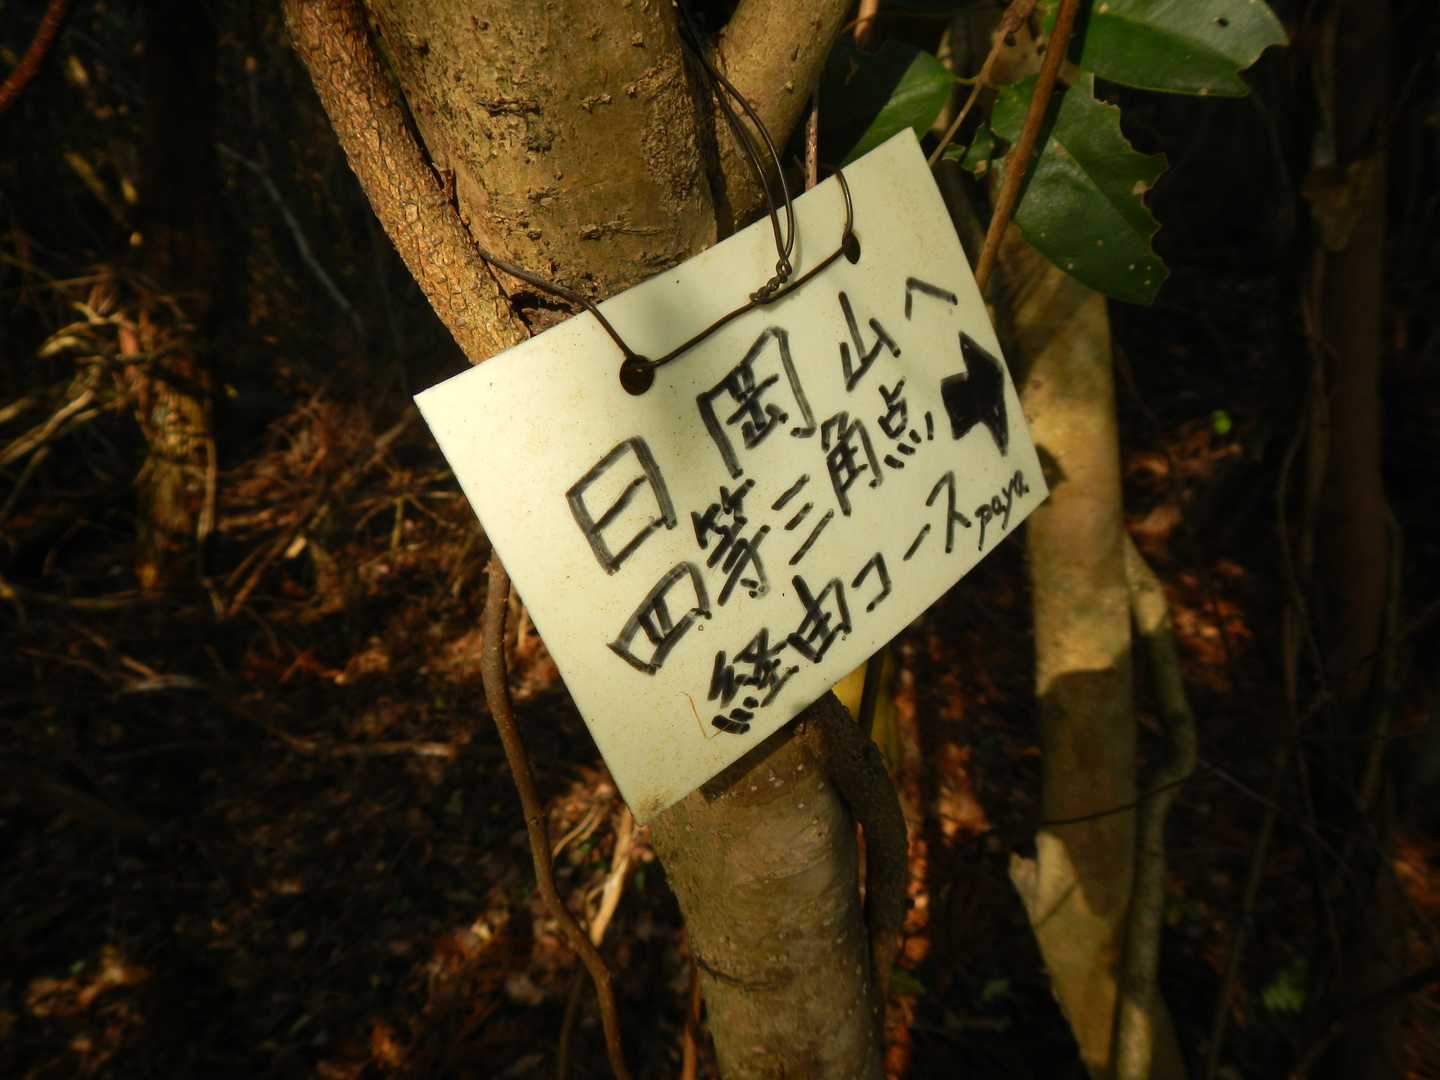 日岡山へ
四等三角点
経由コース paya